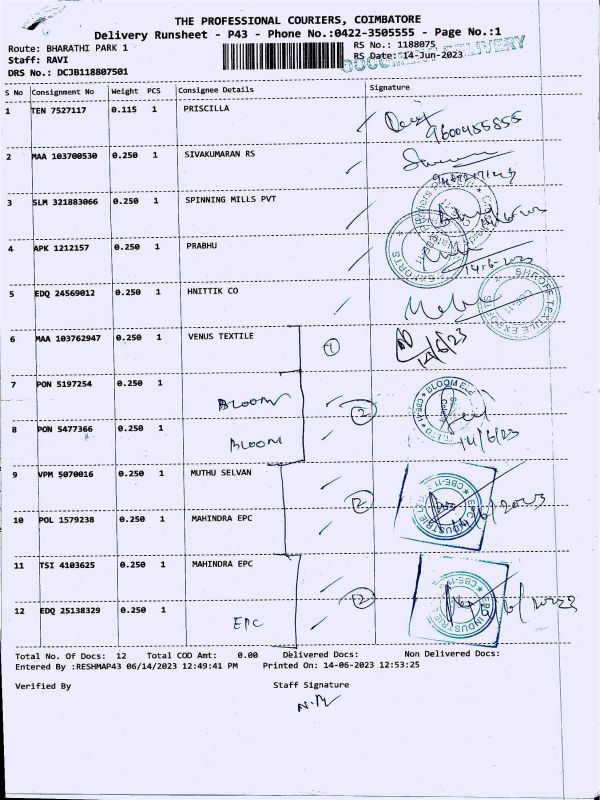 THE PROFESSIONAL COURIERS, COIMBATORE
Delivery Runsheet - P43 - Phone No.:0422-3505555 - Page No.:1
Route: BHARATHI PARK 1 RS No.: 1188075
Staff: RAVI RS Date: 14-Jun-2023
DOCUMENT DELIVERY
DRS No.: DCJB118807501
S No Consignment No Weight PCS Consignee Details Signature
1 TEN 7527117 0.115 1 PRISCILLA
9600455855
2 MAA 103700530 0.250 1 SIVAKUMARAN RS
3 SLM 321883066 0.250 1 SPINNING MILLS PVT
4 APK 1212157 0.250 1 PRABHU
14-6-2023
5 EDQ 24569012 0.250 1 HNITTIK CO
SHROFF TEXTILE EXPORTS CBE-11
6 MAA 103762947 0.250 1 VENUS TEXTILE 1
14/6/23
7 PON 5197254 0.250 1 BLOOM 2
8 PON 5477366 0.250 1 BLOOM
14/6/23
9 VPM 5070016 0.250 1 MUTHU SELVAN 2
EPC INDUSTRIE CBE-11
10 POL 1579238 0.250 1 MAHINDRA EPC
11 TSI 4103625 0.250 1 MAHINDRA EPC 2
EPC INDUSTRIE CBE-11
12 EDQ 25138329 0.250 1 EPC
Total No. Of Docs: 12 Total COD Amt: 0.00 Delivered Docs: Non Delivered Docs:
Entered By :RESHMAP43 06/14/2023 12:49:41 PM Printed On: 14-06-2023 12:53:25
Verified By Staff Signature